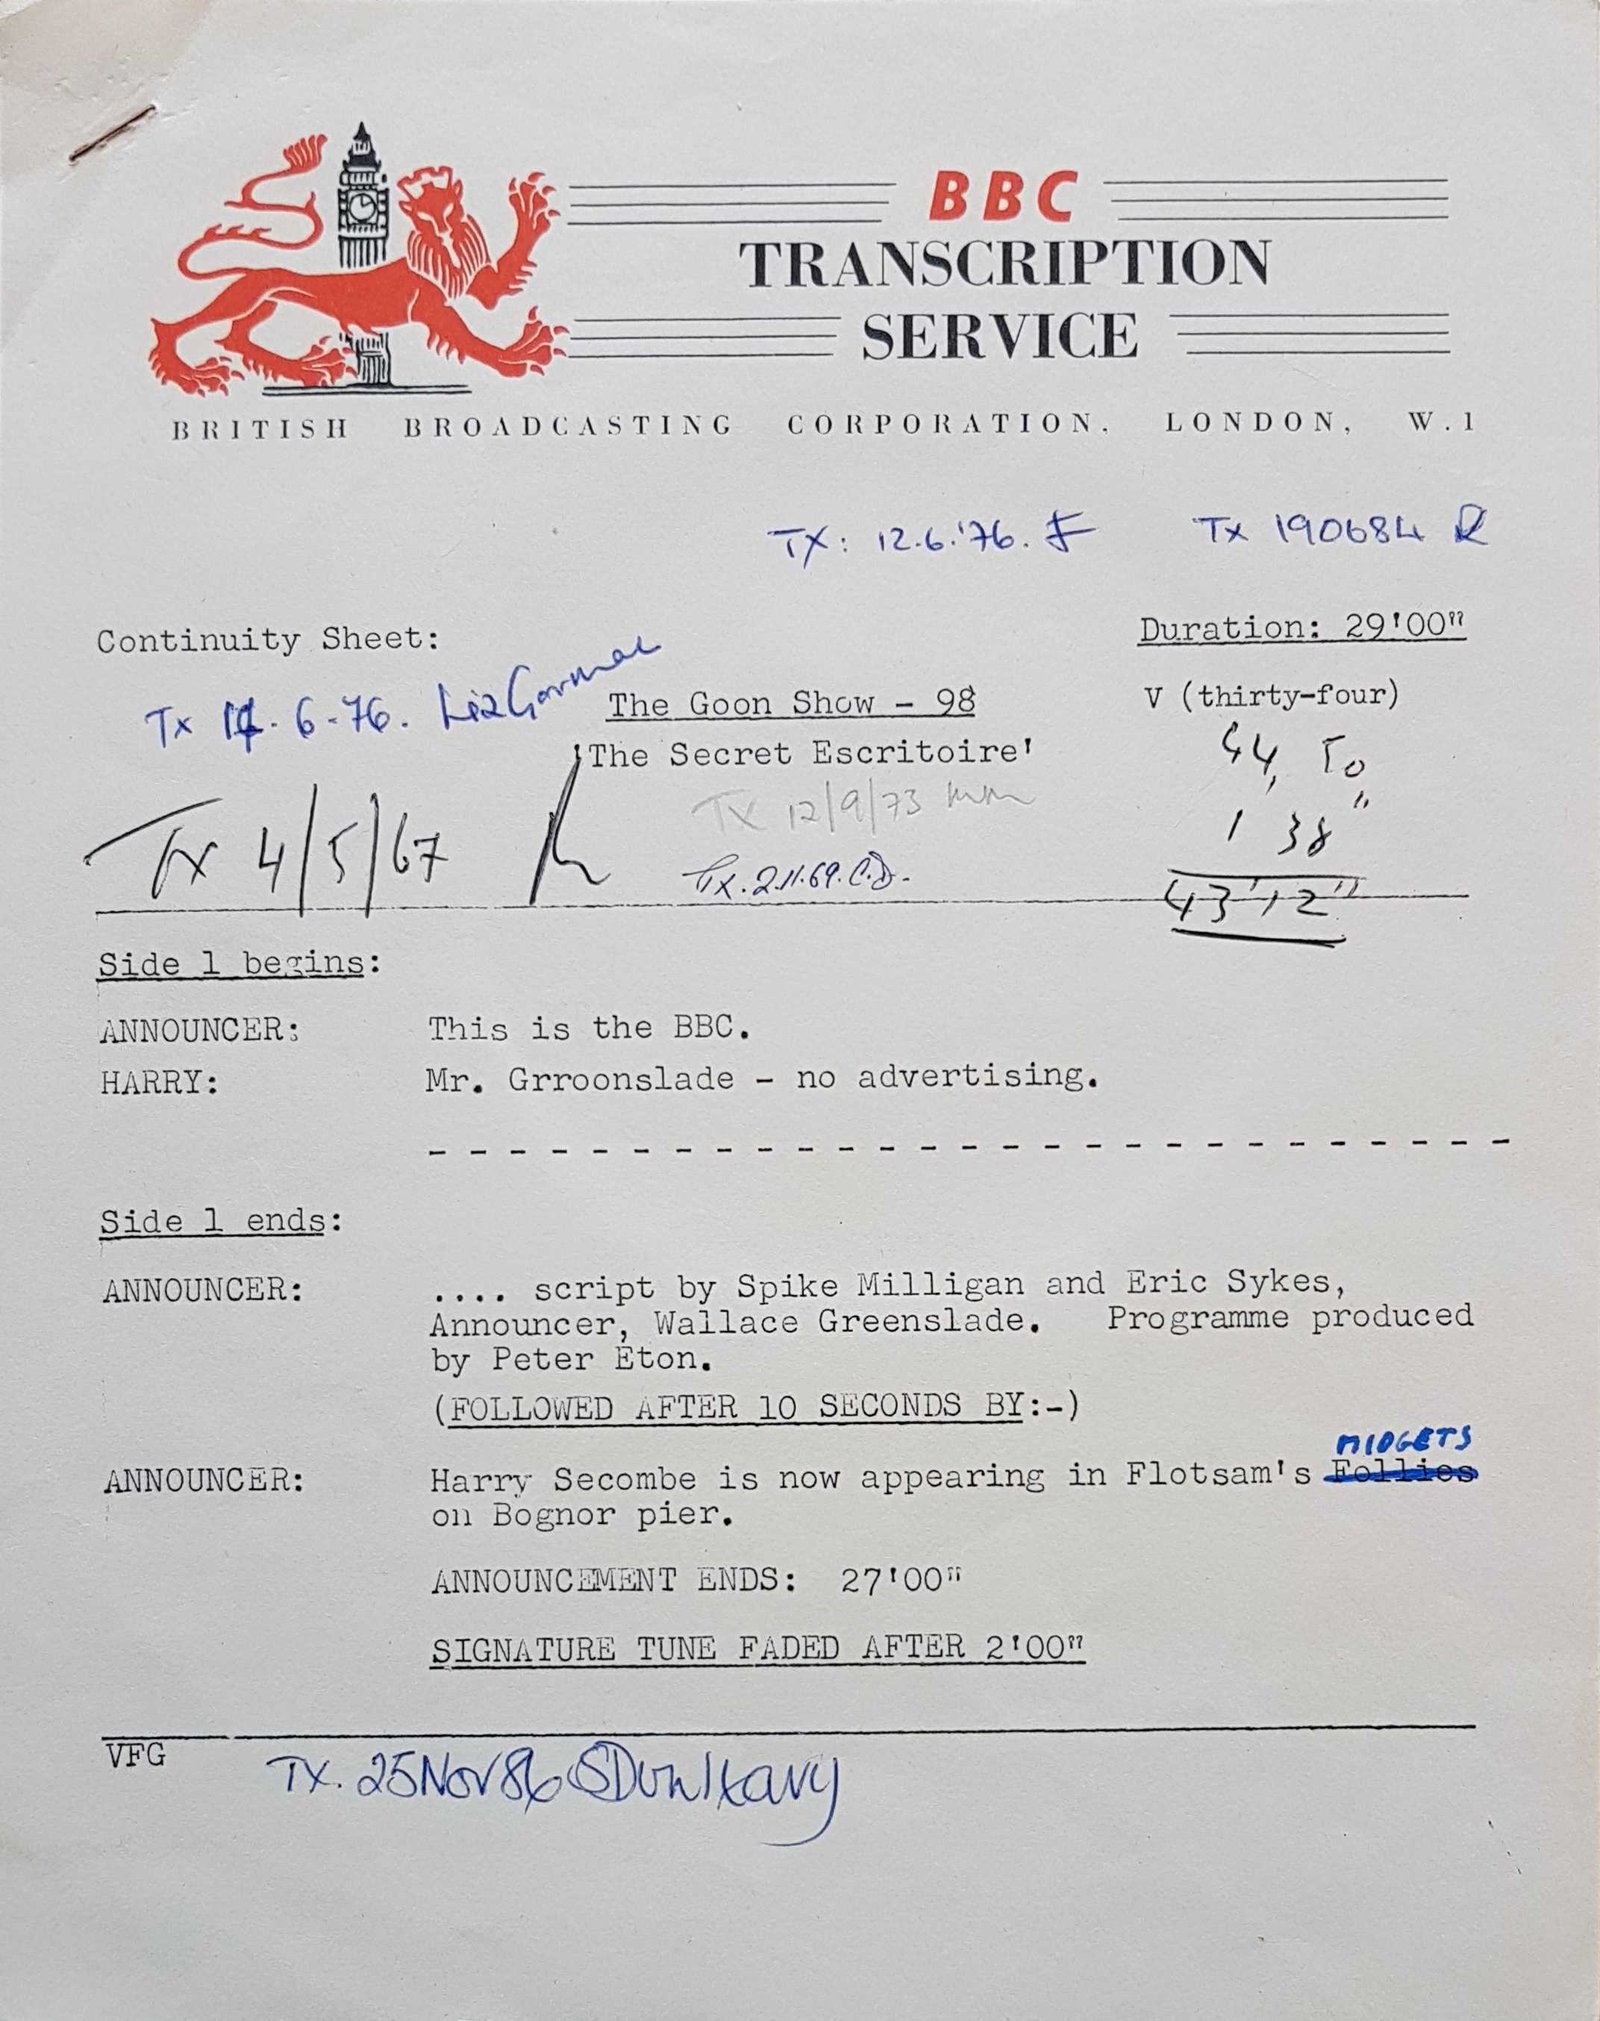 BBC
TRANSCRIPTION
SERVICE
BRITISH BROADCASTING CORPORATION, LONDON, W.1
TX: 12.6.'76. F Tx 190684 R
Continuity Sheet:
Duration: 29'00"
Tx 14.6-76. Liz Gorman
The Goon Show - 98
V (thirty-four)
'The Secret Escritoire'
44, 50
Tx 12/9/73
1 38"
Tx 4/5/67
Tx. 2.11.69. C.D.
43'12"
Side 1 begins:
ANNOUNCER: This is the BBC.
HARRY: Mr. Grroonslade - no advertising.
- - - - - - - - - - - - - - - - - - - - - - - - - - -
Side 1 ends:
ANNOUNCER: .... script by Spike Milligan and Eric Sykes,
Announcer, Wallace Greenslade. Programme produced
by Peter Eton.
(FOLLOWED AFTER 10 SECONDS BY:-)
MIDGETS
ANNOUNCER: Harry Secombe is now appearing in Flotsam's Follies
on Bognor pier.
ANNOUNCEMENT ENDS: 27'00"
SIGNATURE TUNE FADED AFTER 2'00"
VFG
TX. 25 Nov 86 SDunleavy